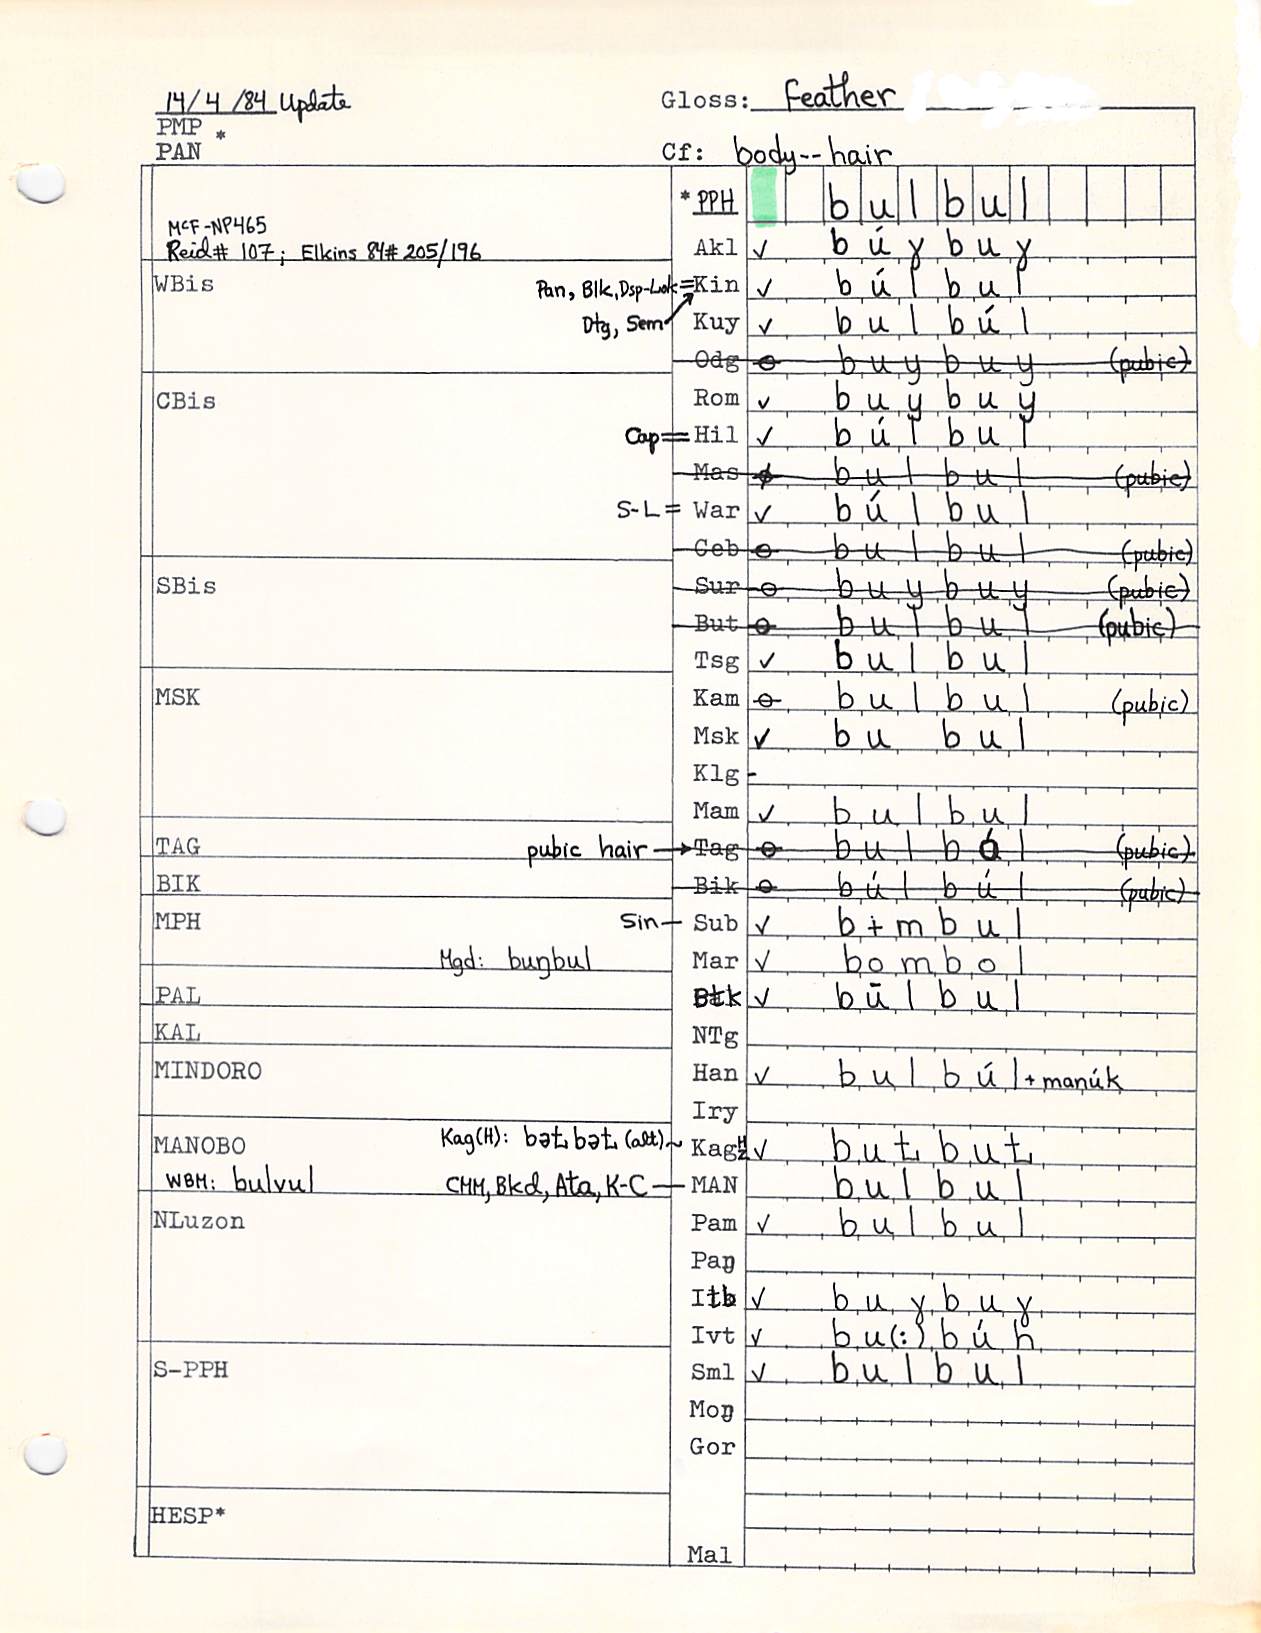 14/4/84 Update Gloss: Feather
PMP *
PAN Cf: body--hair
*PPH bulbul
McF-NP465
Reid# 107; Elkins 84# 205/196 Akl ✓ búɣbuɣ
WBis Pan, Blk, Dsp-Lok = Kin ✓ búlbul
Dtg, Sem Kuy ✓ bulbúl
Odg buybuy (pubic)
CBis Rom ✓ buybuy
Cap = Hil ✓ búlbul
Mas bulbul (pubic)
S-L = War ✓ búlbul
Ceb bulbul (pubic)
SBis Sur buybuy (pubic)
But bulbul (pubic)
Tsg ✓ bulbul
MSK Kam bulbul (pubic)
Msk ✓ bu bul
Klg -
Mam ✓ bulbul
TAG pubic hair → Tag bulból (pubic)
BIK Bik búlbúl (pubic)
MPH Sin — Sub ✓ bɨmbul
Mgd: buŋbul Mar ✓ bombol
PAL Btk ✓ būlbul
KAL NTg
MINDORO Han ✓ bulbúl + manúk
Iry
MANOBO Kag(H): bətbət (alt) Kag H Z ✓ butbut
WBM: bulvul CMM, Bkd, Ata, K-C — MAN bulbul
NLuzon Pam ✓ bulbul
Paŋ
Itb ✓ buɣbuɣ
Ivt ✓ bu(:)búh
S-PPH Sml ✓ bulbul
Moŋ
Gor
HESP*
Mal